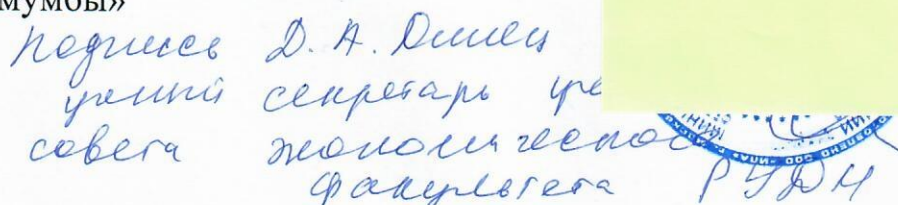 мумбы»
Подпись Д. А. Динец
ученый секретарь уче
совета экономического
факультета РУДН